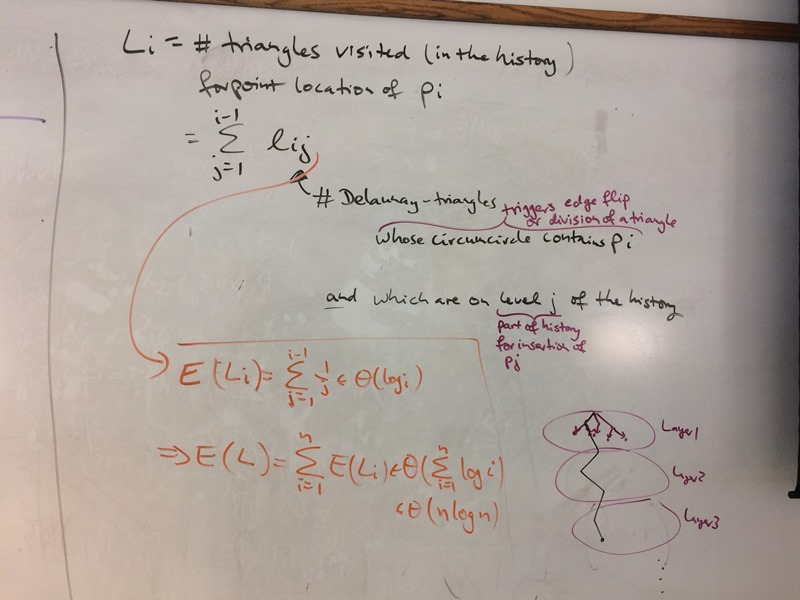 Li = # triangles visited (in the history)
for point location of pi
= i-1 ∑ j=1 lij
# Delaunay-triangles
triggers edge flip
or division of a triangle
whose circumcircle contains pi
and which are on level j of the history
part of history
for insertion of
pj
E(Li) = i-1 ∑ j=1 1/j ∈ Θ(log i)
⇒ E(L) = n ∑ i=1 E(Li) ∈ Θ(n ∑ i=1 log i)
∈ Θ(n log n)
Layer1
Layer2
Layer3